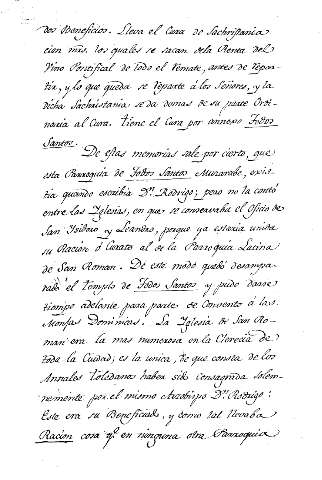 dos Beneficios. Lleva el Cura de Sachristania
cien mrs. los quales se sacan de la Renta del
Vino Pontifical de todo el Remate, antes de repar-
tir, y lo que queda se reparte á los Señores, y la
dicha Sachristania se da demas de su parte Ordi-
naria al Cura. tiene el Cura por annexo Todos
Santos.
De estas memorias sale por cierto, que
esta Parroquia de Todos Santos Muzarabe, exis-
tia quando escribia Dn. Rodrigo; pero no la contó
entre las Iglesias, en que se conservaba el Oficio de
San Isidoro y Leandro, porque ya estaria unida
su Racion ó Curato al de la Parroquia Latina
de San Roman. De este modo quedó desampa-
rado el templo de Todos Santos y pudo darse
tiempo adelante para parte de Convento á las
Monjas Dominicas. La Iglesia de San Ro-
man era la mas numerosa en la Clerecia de
toda la Ciudad; es la unica, de que consta de los
Annales Toledanos haber sido consagrada solem-
nemente por el mismo Arzobispo Dn. Rodrigo:
Este era su Beneficiado, y como tal llevaba
Racion cosa qe. en ninguna otra Parroquia